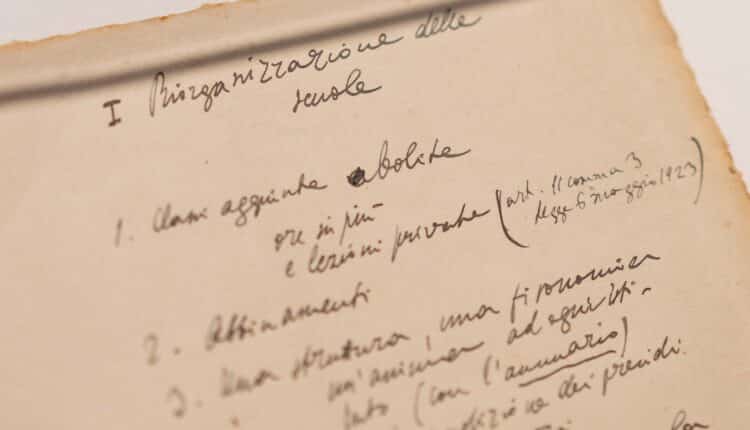 I Riorganizzazione delle
scuole
1. Classi aggiunte abolite
ore in più
e lezioni private (art. 11 comma 3
legge 6 maggio 1923)
2. Abbinamenti
3. Una struttura, una fisonomia
un'anima ad ogni Isti-
tuto (con l'annuario)
dizione dei presidi.